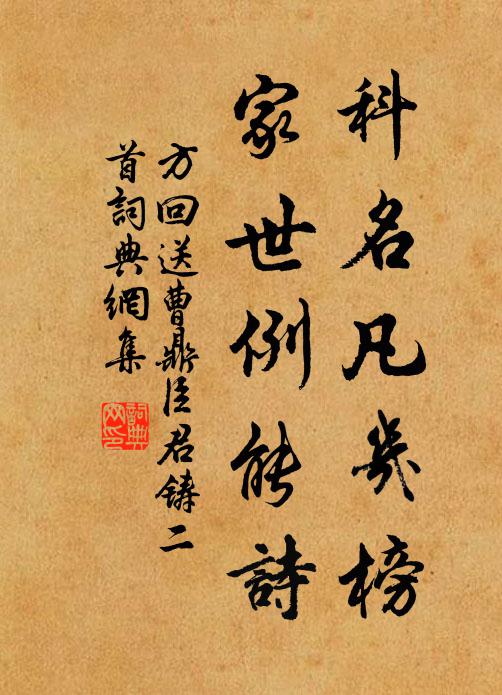 科名凡幾榜
家世例能詩
方回送曹鼎臣君鑄二
首詞典網集
詞典
网印